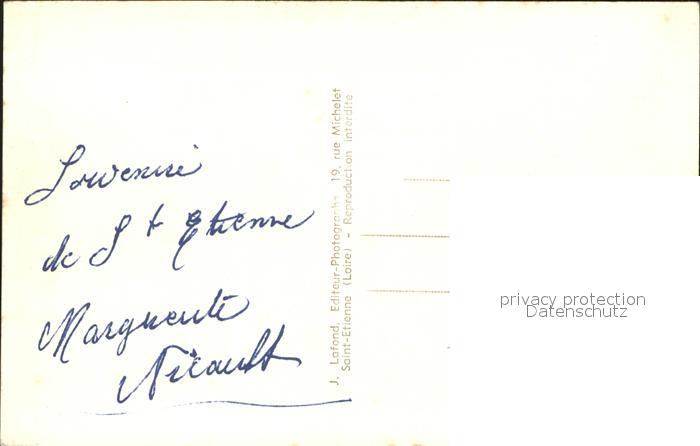 Souvenir
de St Etienne
Marguerite
J. Lafond, Editeur-Photographe 19, rue Michelet
Saint-Etienne (Loire) - Reproduction interdite
privacy protection
Datenschutz